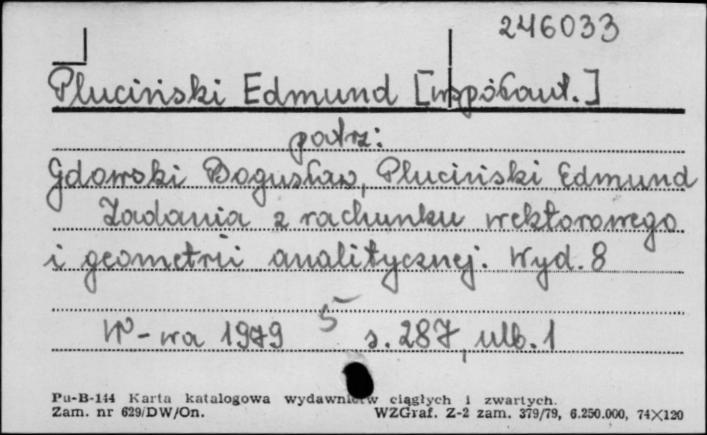 246033
Pluciński Edmund [współaut.]
patrz:
Gdowski Bogusław, Pluciński Edmund
Zadania z rachunku wektorowego
i geometrii analitycznej. Wyd. 8
5
W-wa 1979 s. 287, ulb. 1
Pu-B-144 Karta katalogowa wydawnictw ciągłych i zwartych.
Zam. nr 629/DW/On. WZGraf. Z-2 zam. 379/79, 6.250.000, 74×120